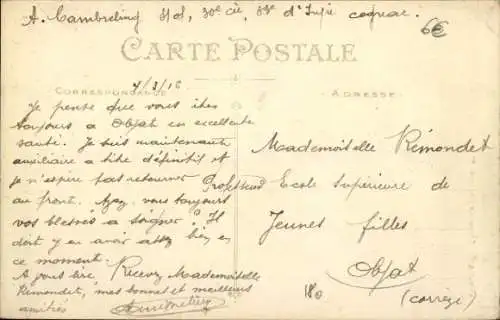 A. Cambreling Hd, 30e cie, 38e d'Infie cognac.
6€
CARTE POSTALE
CORRESPONDANCE
ADRESSE
4/3/16
Je pense que vous êtes
toujours a Objat en excellente
santé. Je suis maintenant
auxiliaire a titre définitif et
je n'espère pas retourner
au front. Avez vous toujours
vos blessés a soigner? Il
doit y en avoir assez bien en
ce moment.
A vous lire Recevez Mademoiselle
Rémondet, mes bonnes et meilleures
amitiés
Mademoiselle Rémondet
Professeur Ecole Supérieure de
Jeunes filles
Objat
(Corrèze)
180